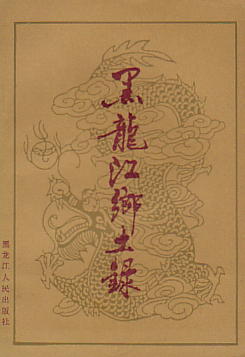 黑龍江鄉土錄
黑龙江人民出版社